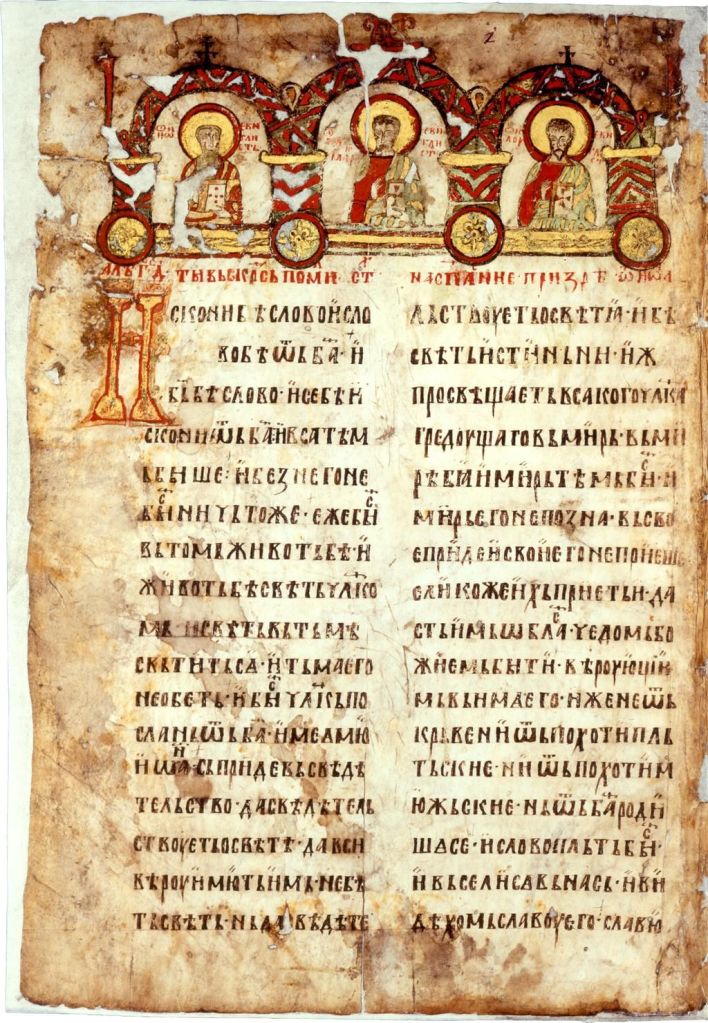 ИСКОНИ БѢ СЛОВО И СЛО
ВО БѢ ѾЬ Б҃А · И
Б҃Ь БѢ СЛОВО · И СЕ БѢ И
СКОНИ ѾЬ Б҃А И ВСА ТѢМ
Ь БЫШЕ · И БЕЗ НЕГО НЕ
БЫⷭ НИЧЬТОЖЕ · ЕЖЕ БЫⷭ
ВЬ ТОМЬ ЖИВОТЬ БѢ · И
ЖИВОТЬ БѢ СВѢТЬ ЧЛ҃КО
МЬ И СВѢТЬ ВЬ ТЬМѢ
СВЬТИТЬ СА · И ТЬМА ЕГО
НЕ ОБЕТЬ · И БЫⷭ ЧЛ҃КЬ ПО
СЛАНЬ ѾЬ Б҃А · ИМЕ ЛМЮ
ИѠАⷩ · СЬ ПРИДЕ ВЬ СВѢДѢ
ТЕЛЬСТВО · ДА СВѢДѢТЕЛЬ
СТВОУЕТЬ О СВѢТѢ · ДА ВСИ
ВѢРОУ ИМЮТЬ ИМЬ · НЕ БѢ
ТЬ СВѢТЬ · НЬ ДА ВѢДѢТЕ
ЛЬСТВОУЕТЬ О СВѢТИ · И БѢ
СВѢТЬ ИСТИНЬНИ · ИЖ
ПРОСВѢЩАЕТЬ ВСАКОГО ЧЛ҃КА
ГРЕДОУЩАГО ВЬ МИРЬ · ВЬ МИ
РѢ БѢ И МИРЬ ТѢМЬ БЫⷭ · И
МИРЬ ЕГО НЕ ПОЗНА · ВЬ СВО
Е ПРИДЕ И СВОИ ЕГО НЕ ПРИЕШЕ
ЕЛИКО ЖЕ ИХЬ ПРИЕТЬ И · ДА
СТЬ ИМЬ ѠБЛАⷭ · ЧЕДОМЬ БО
ЖИЕМЬ БЫТИ · ВѢРОУЮЩИИ
МЬ ВЬ ИМА ЕГО · ИЖЕ НЕ ѾЬ
КРЬВЕ НИ ѾЬ ПОХОТИ ПЛЬ
ТЬСКИЕ · НИ ѾЬ ПОХОТИ М
ЮЖЬСКИЕ · НЬ ѾЬ Б҃А РОДИ
ША СЕ · И СЛОВО ПЛЬТЬ БЫⷭ ·
И ВЬСЕЛИ СА ВЬ НАСЬ · И ВИ
ДѢХОМЬ СЛАВОУ ЕГО · СЛАВЮ